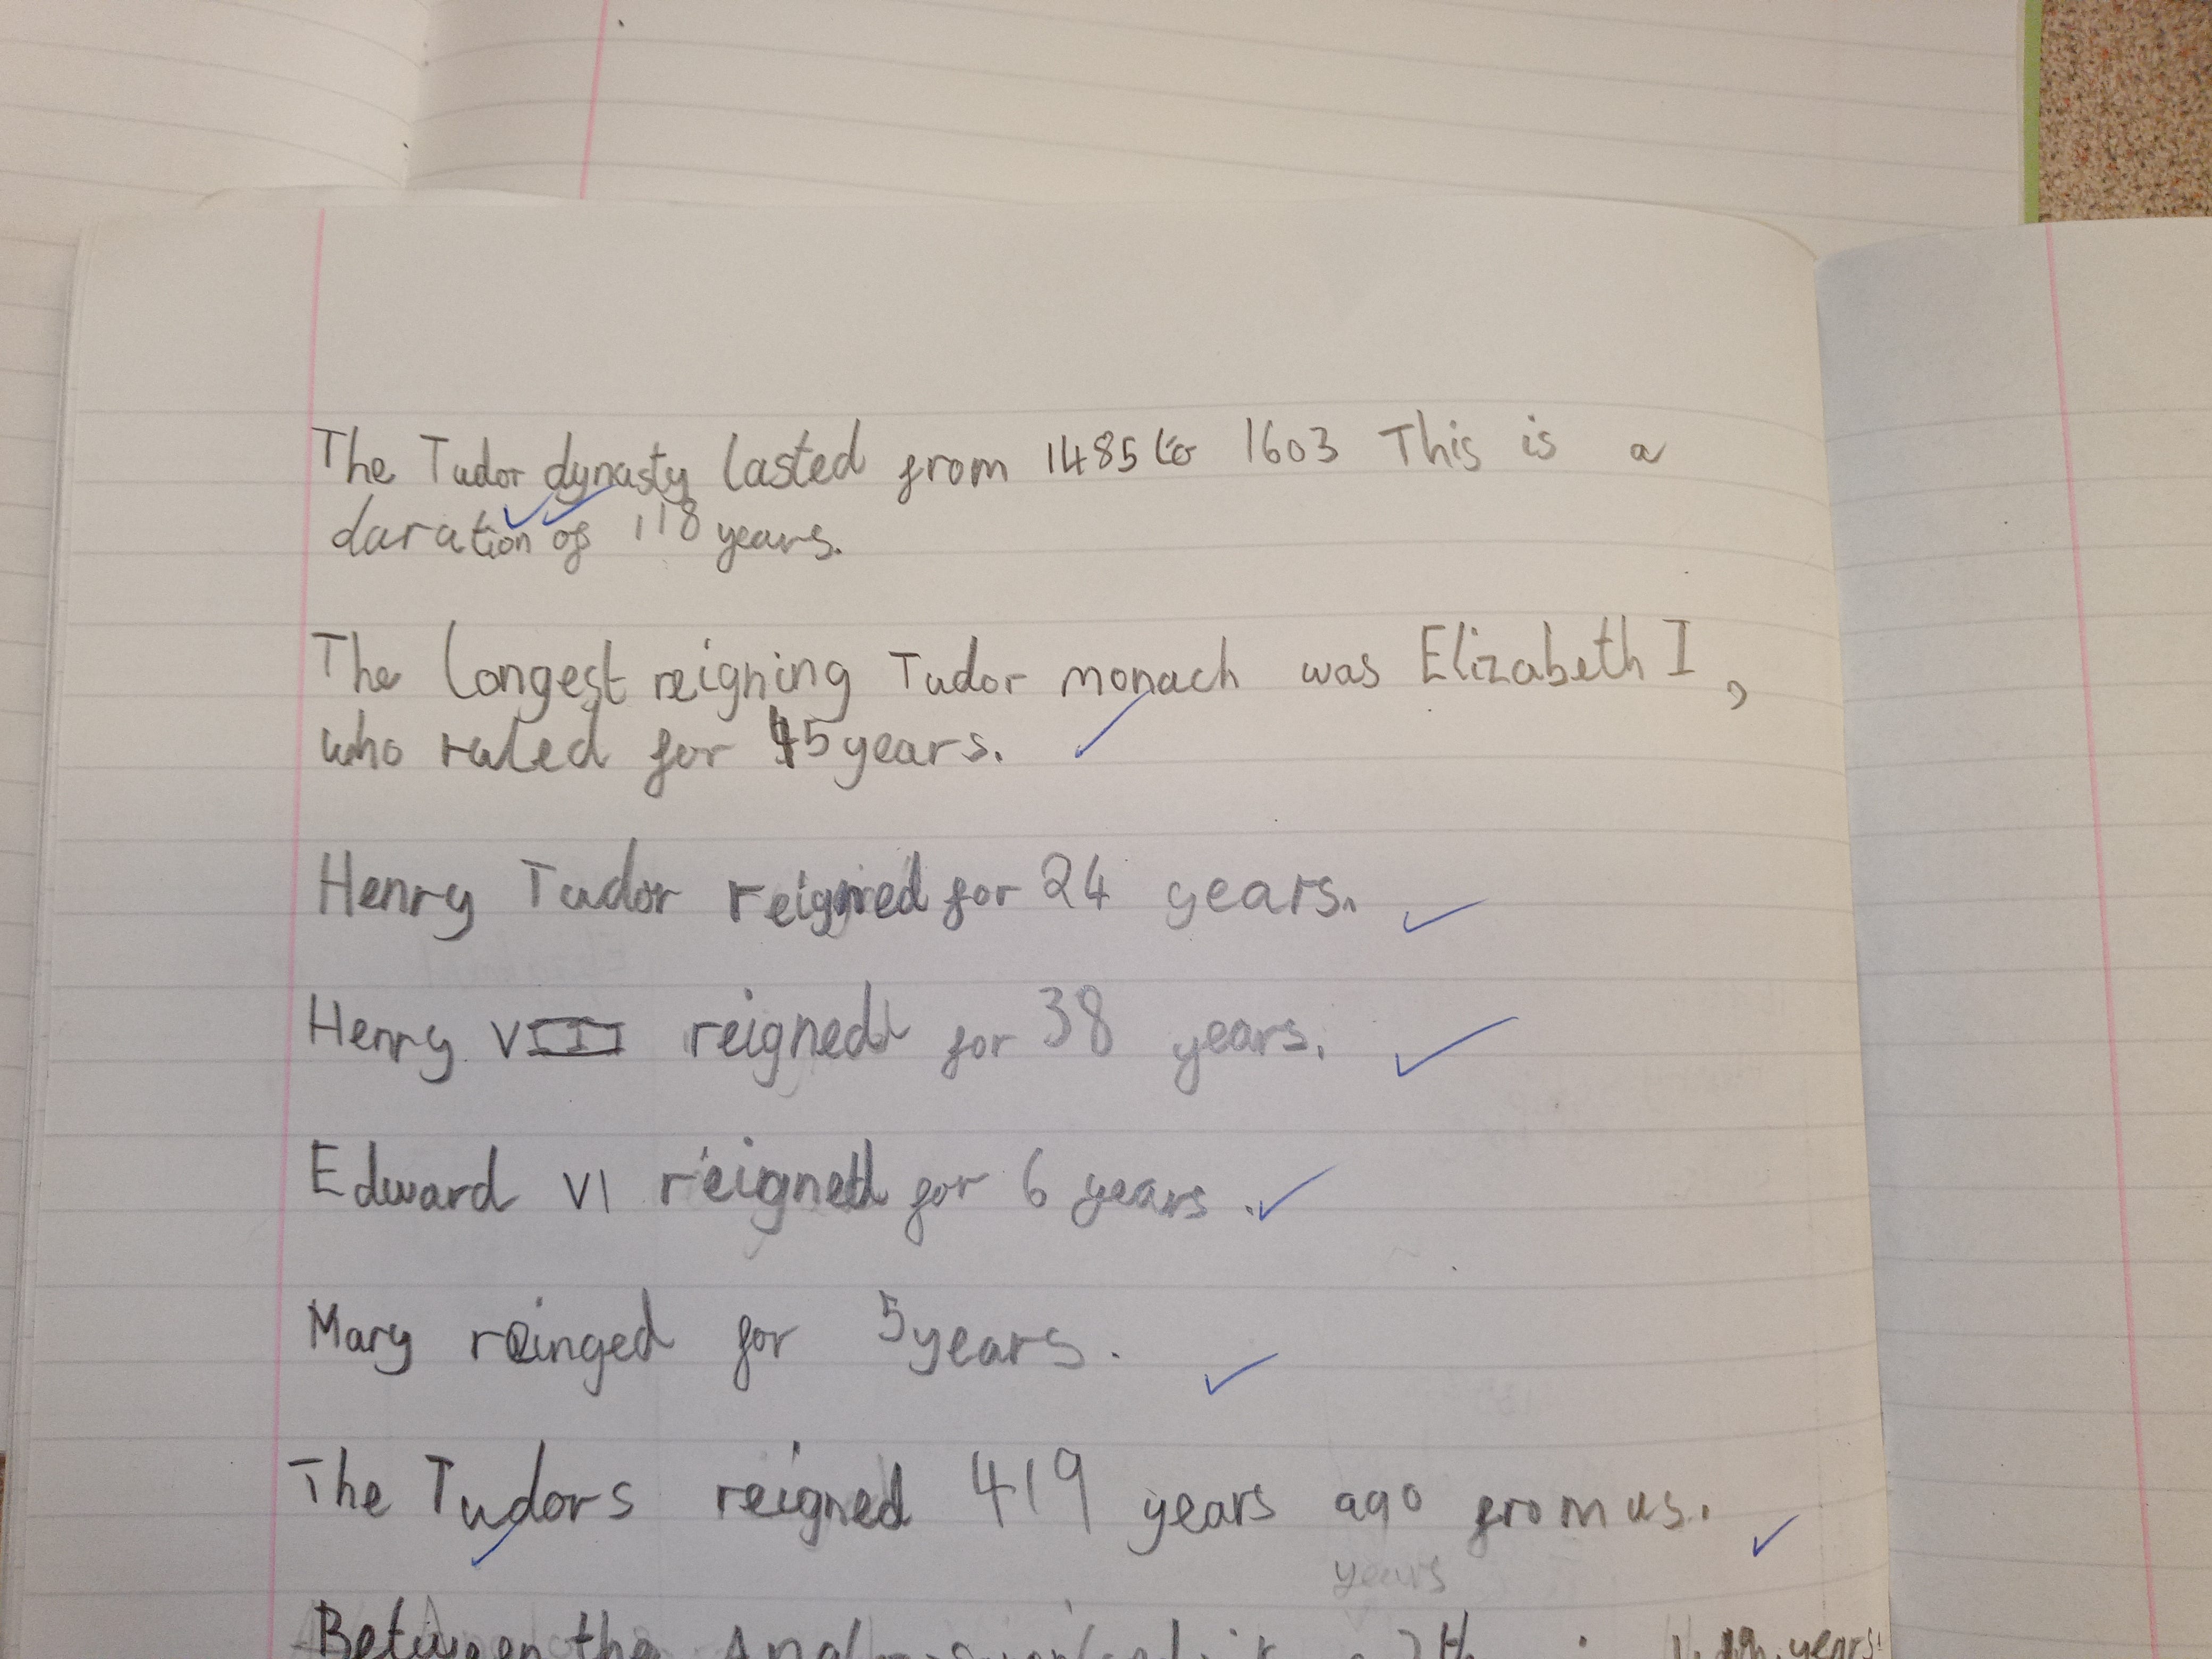 The Tudor dynasty lasted from 1485 to 1603 This is a
daration of 118 years.
The longest reigning Tudor monach was Elizabeth I,
who ruled for 45 years.
Henry Tudor reigned for 24 years.
Henry VIII reigned for 38 years.
Edward VI reigned for 6 years.
Mary reinged for 5 years.
The Tudors reigned 419 years ago from us.
years
Between the
years